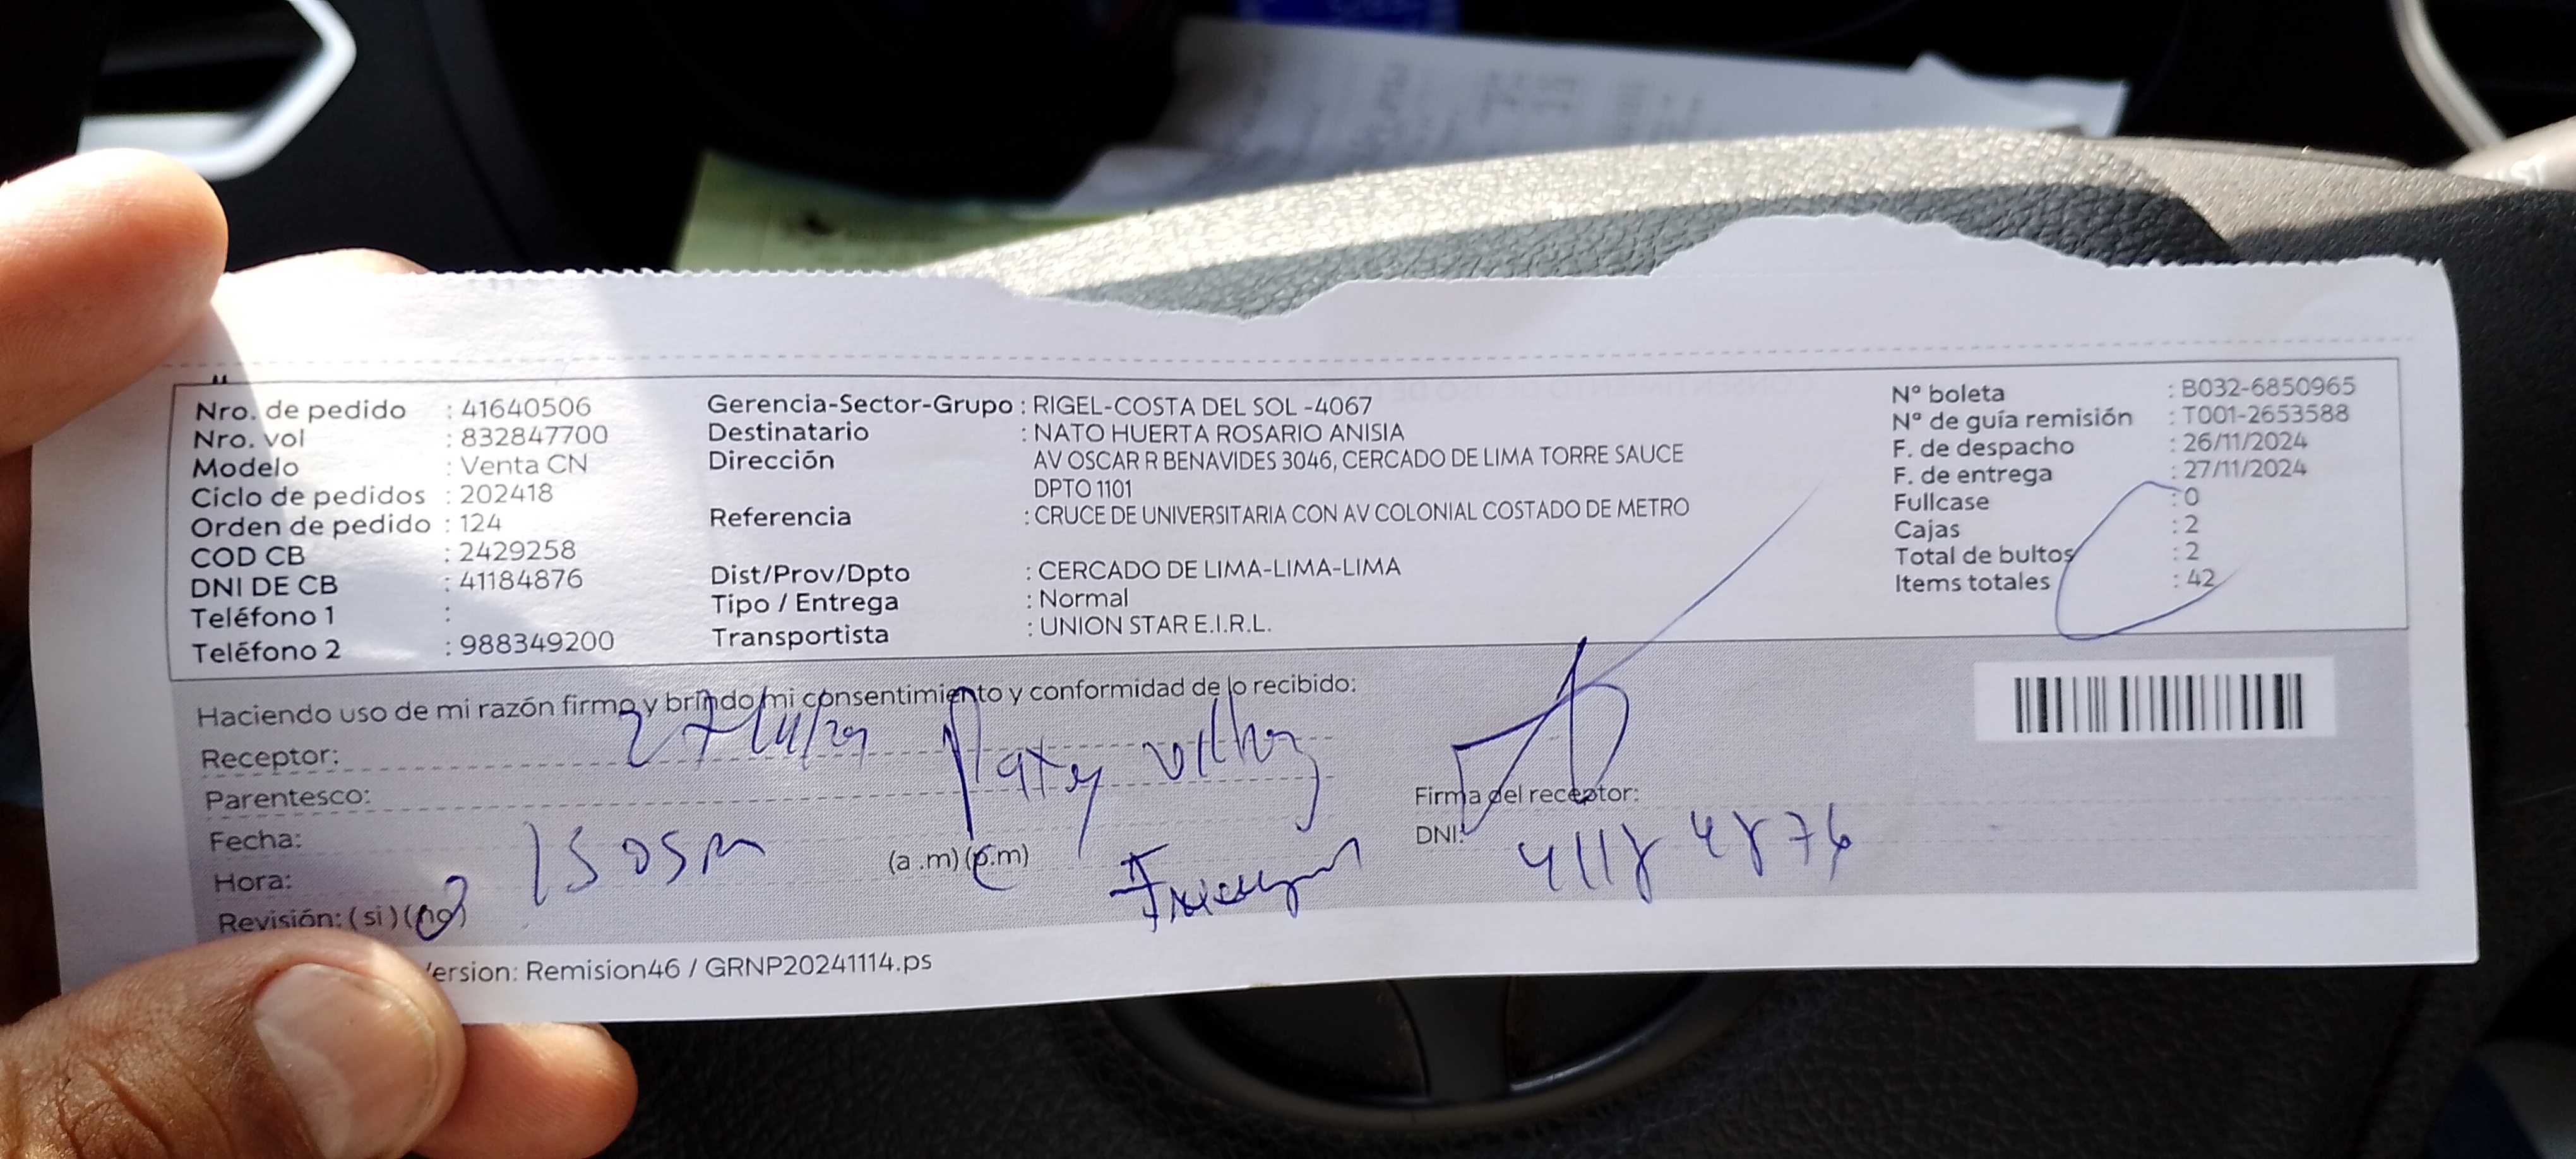 Nro. de pedido : 41640506
Nro. vol : 832847700
Modelo : Venta CN
Ciclo de pedidos : 202418
Orden de pedido : 124
COD CB : 2429258
DNI DE CB : 41184876
Teléfono 1 :
Teléfono 2 : 988349200
Gerencia-Sector-Grupo : RIGEL-COSTA DEL SOL -4067
Destinatario : NATO HUERTA ROSARIO ANISIA
Dirección AV OSCAR R BENAVIDES 3046, CERCADO DE LIMA TORRE SAUCE
DPTO 1101
Referencia : CRUCE DE UNIVERSITARIA CON AV COLONIAL COSTADO DE METRO
Dist/Prov/Dpto : CERCADO DE LIMA-LIMA-LIMA
Tipo / Entrega : Normal
Transportista : UNION STAR E.I.R.L.
Nº boleta : B032-6850965
Nº de guía remisión : T001-2653588
F. de despacho : 26/11/2024
F. de entrega : 27/11/2024
Fullcase : 0
Cajas : 2
Total de bultos : 2
Items totales : 42
Haciendo uso de mi razón firmo y brindo mi consentimiento y conformidad de lo recibido:
Receptor: 27/11/24
Parentesco:
Fecha:
Hora: (a .m) (p.m)
Revisión: (si) (no)
Firma del receptor:
DNI: 41184876
ersion: Remision46 / GRNP20241114.ps